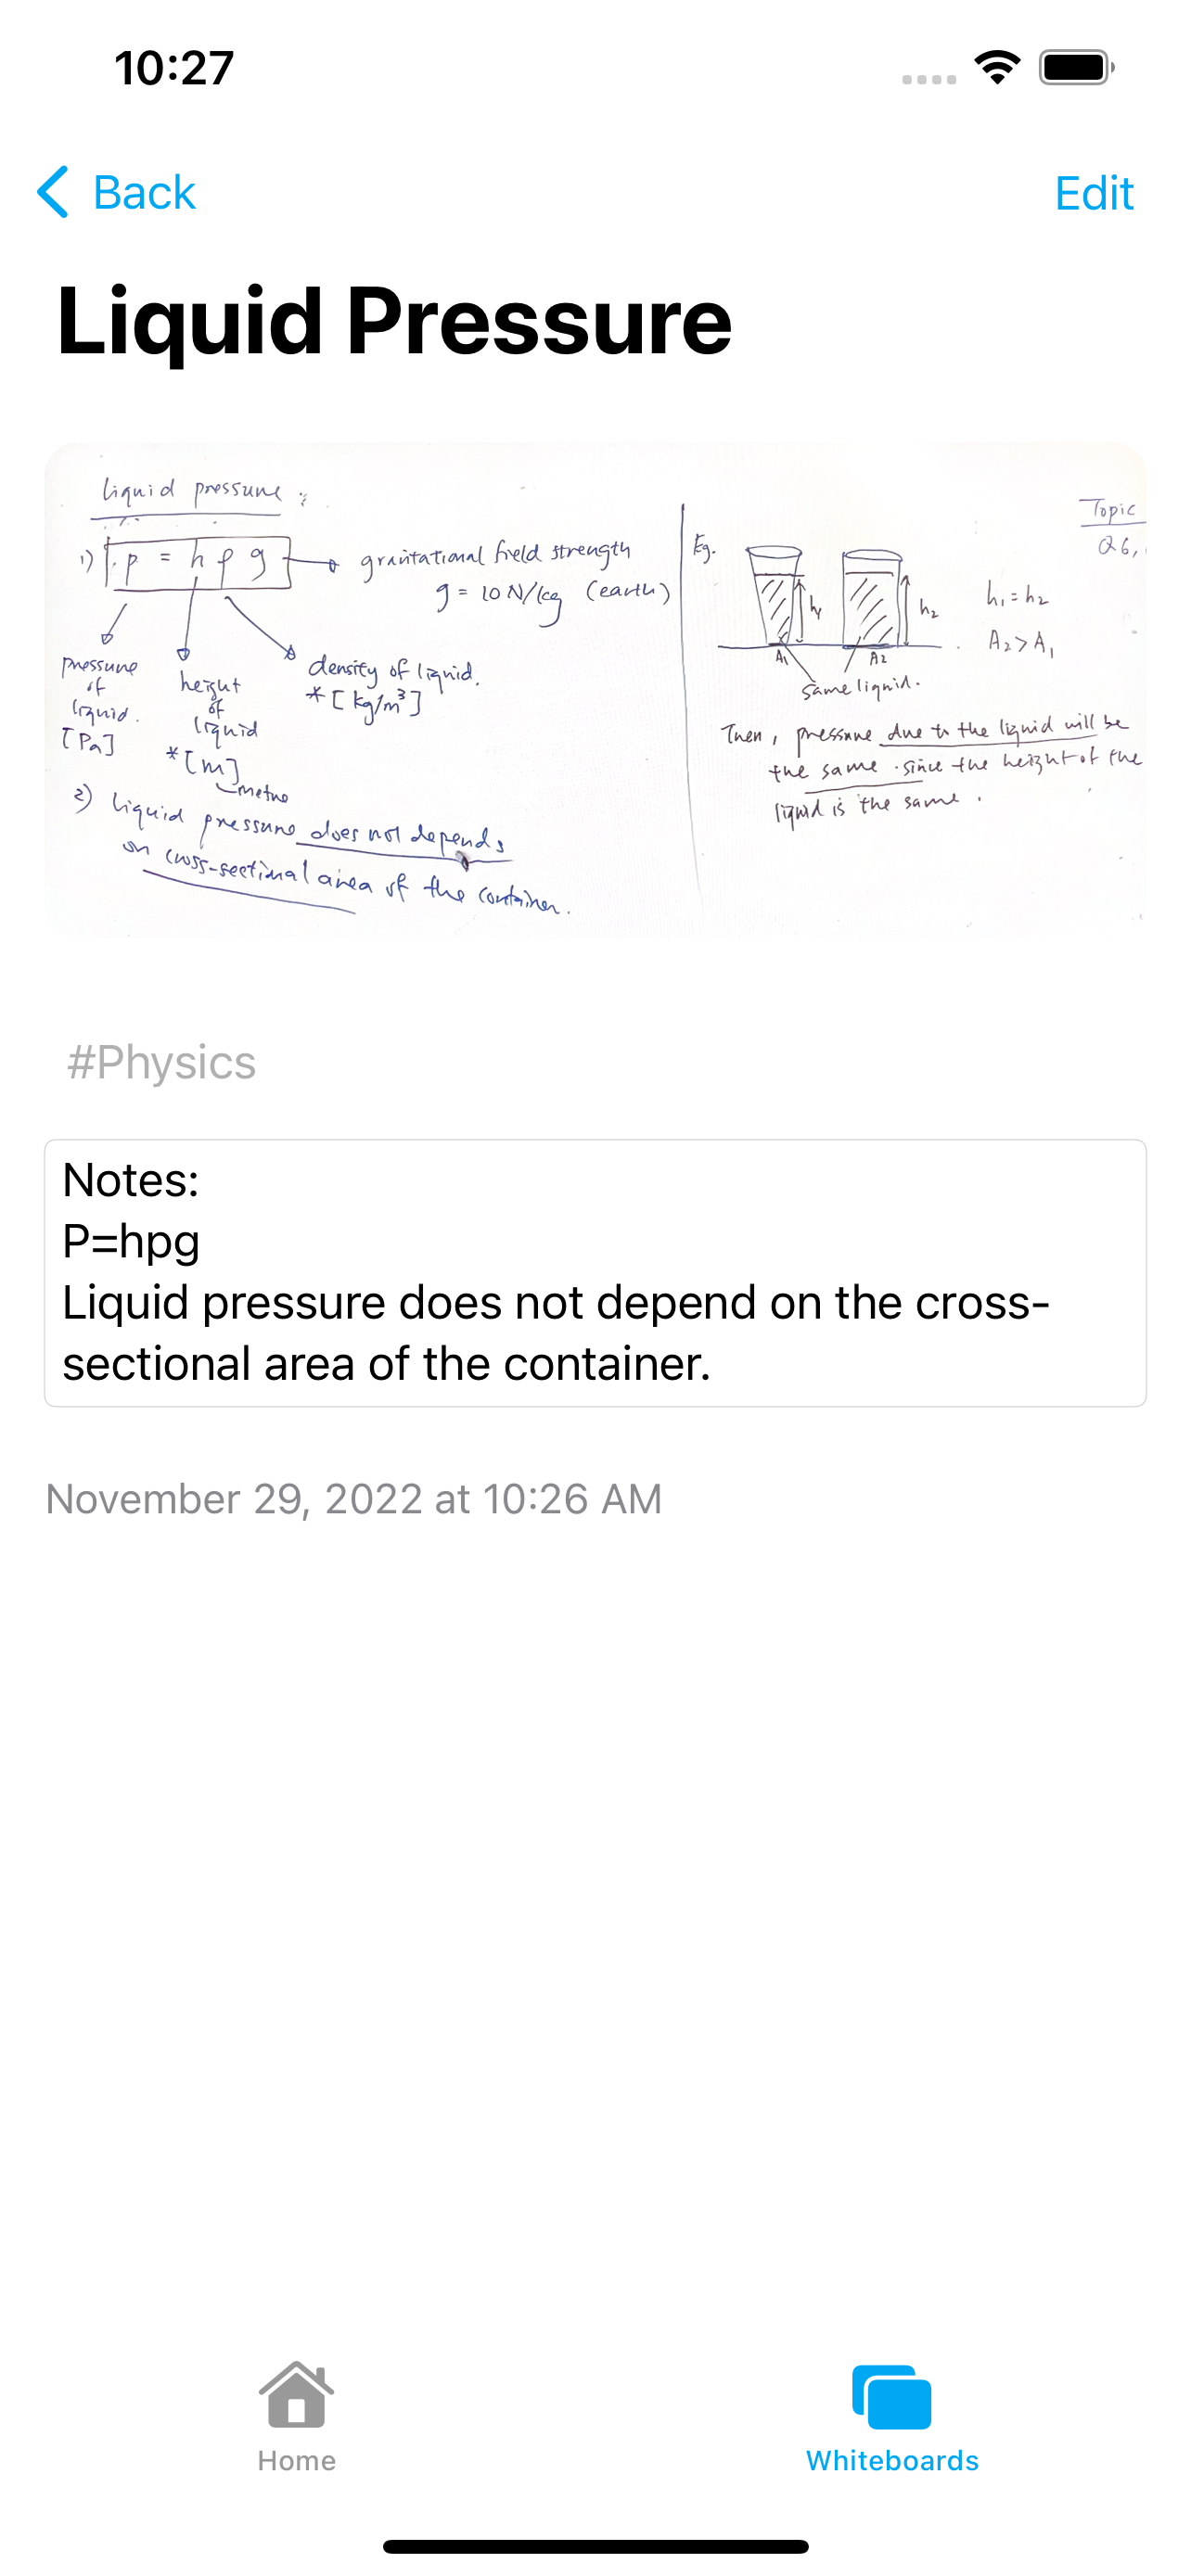 10:27
Back
Edit
Liquid Pressure
liquid pressure :
1) p = hρg
gravitational field strength
g = 10 N/kg (earth)
pressure
of
liquid.
[Pa]
height
of
liquid
*[m]
metre
density of liquid.
*[kg/m³]
2) liquid pressure does not depends
on cross-sectional area of the container.
Eg.
h₁
h₂
A₁
A₂
same liquid.
h₁ = h₂
A₂ > A₁
Then, pressure due to the liquid will be
the same. since the height of the
liquid is the same.
Topic
Q6,
#Physics
Notes:
P=hpg
Liquid pressure does not depend on the cross-
sectional area of the container.
November 29, 2022 at 10:26 AM
Home
Whiteboards